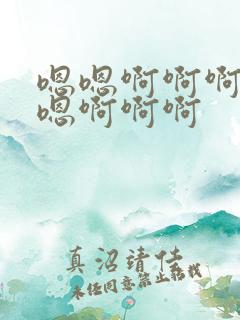 嗯嗯啊啊啊
嗯啊啊啊
真沼靖佳
未经同意禁止转载